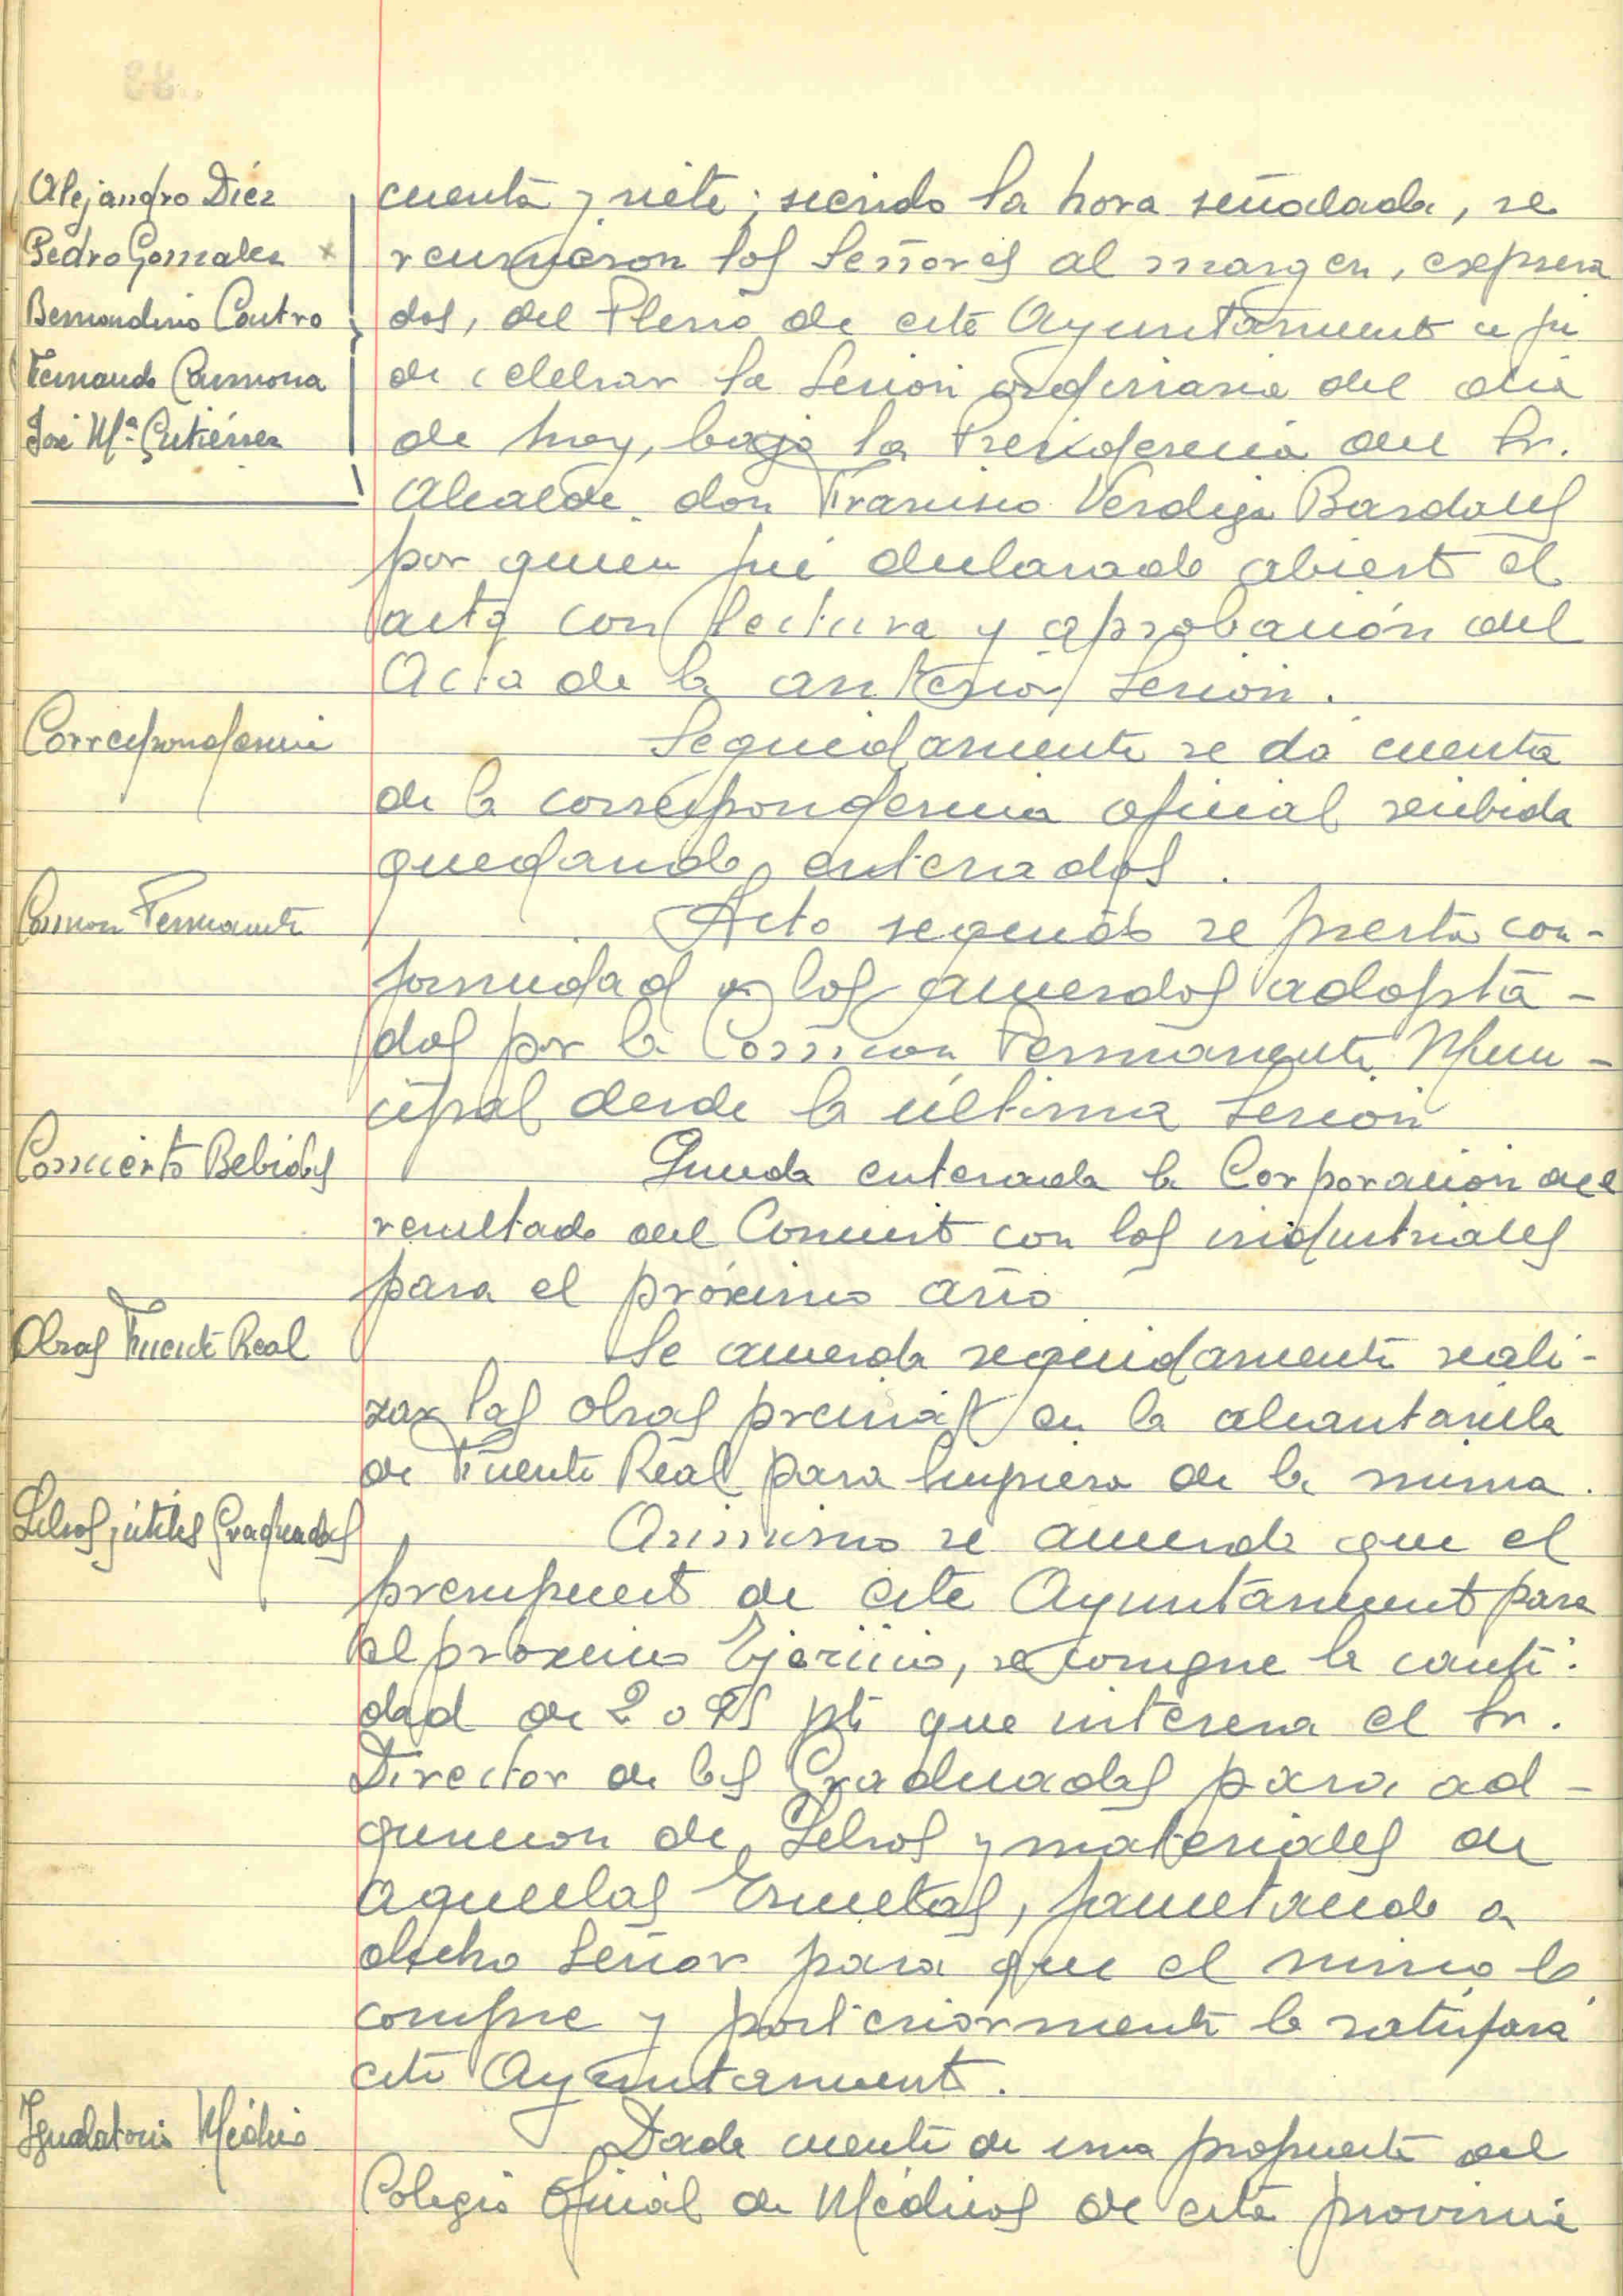 Alejandro Diéz
Pedro Gonzalez
Bernardino Castro
Fernando Carmona
José Mª Gutiérrez
cuenta y siete; siendo la hora señalada, se
reunieron los Señores al margen, expresa
dos, del Pleno de este Ayuntamiento a fin
de celebrar la Sesion ordinaria del dia
de hoy, bajo la Presidencia del Sr.
Alcalde don Francisco Verdeja Bardales
por quien fué declarado abierto el
acto con lectura y aprobación del
Acta de la anterior Sesion.
Correspondencia
Seguidamente se da cuenta
de la correspondencia oficial recibida
quedando enterados.
Comision Permanente
Acto seguido se presta con-
formidad a los acuerdos adopta-
dos por la Comision Permanente Muni-
cipal desde la última Sesion
Concierto Bebidas
Queda enterada la Corporación del
resultado del Concierto con los industriales
para el próximo año
Obras Fuente Real
Se acuerda seguidamente reali-
zar las obras precisas en la alcantarilla
de Fuente Real para limpieza de la misma.
Libros, útiles Graduadas
Asimismo se acuerda que el
presupuesto de este Ayuntamiento para
el proximo Ejercicio, se consigne la canti-
dad de pts que interesa el Sr.
Director de las Graduadas para ad-
quisicion de Libros y materiales de
aquellas Escuelas, facultando a
dicho Señor para que el mismo lo
compre y posteriormente lo satisfará
este Ayuntamiento.
Igualatorio Médico
Dada cuenta de una propuesta del
Colegio Oficial de Médicos de esta provincia